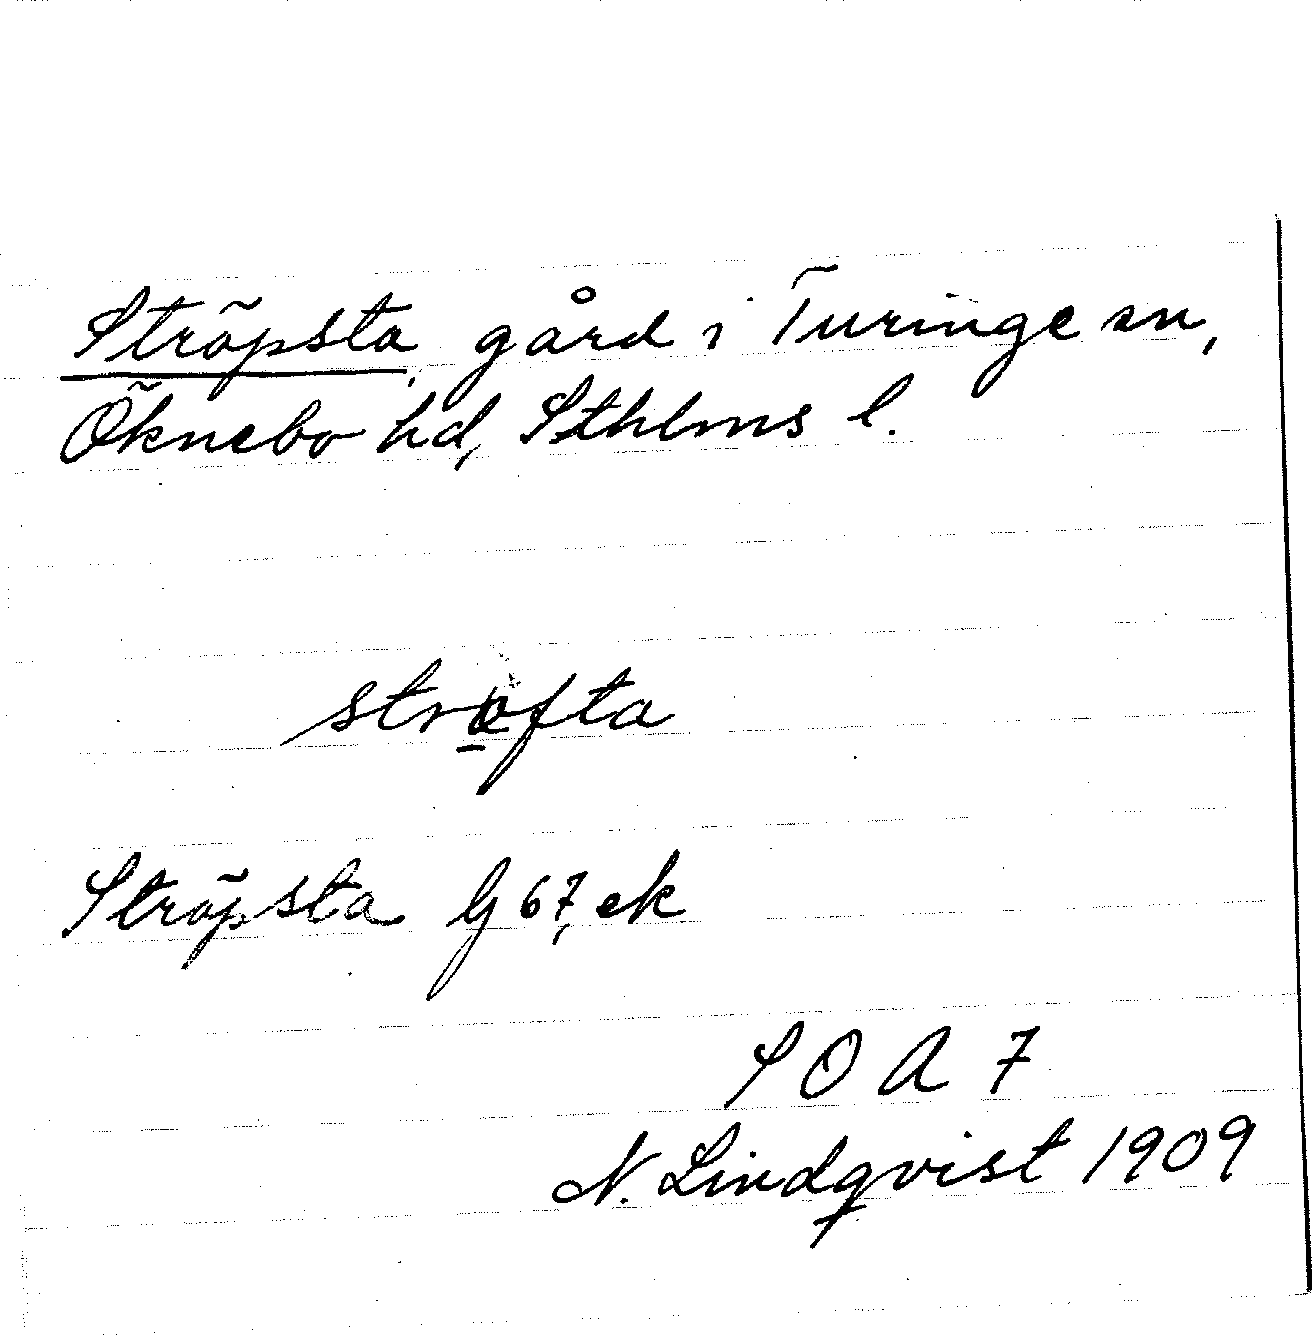 Ströpsta, gård i Turinge sn,
Öknebo hd, Sthlms l.
strøfta
Ströpsta Gj 67, ek
SOA 7
N. Lindqvist 1909